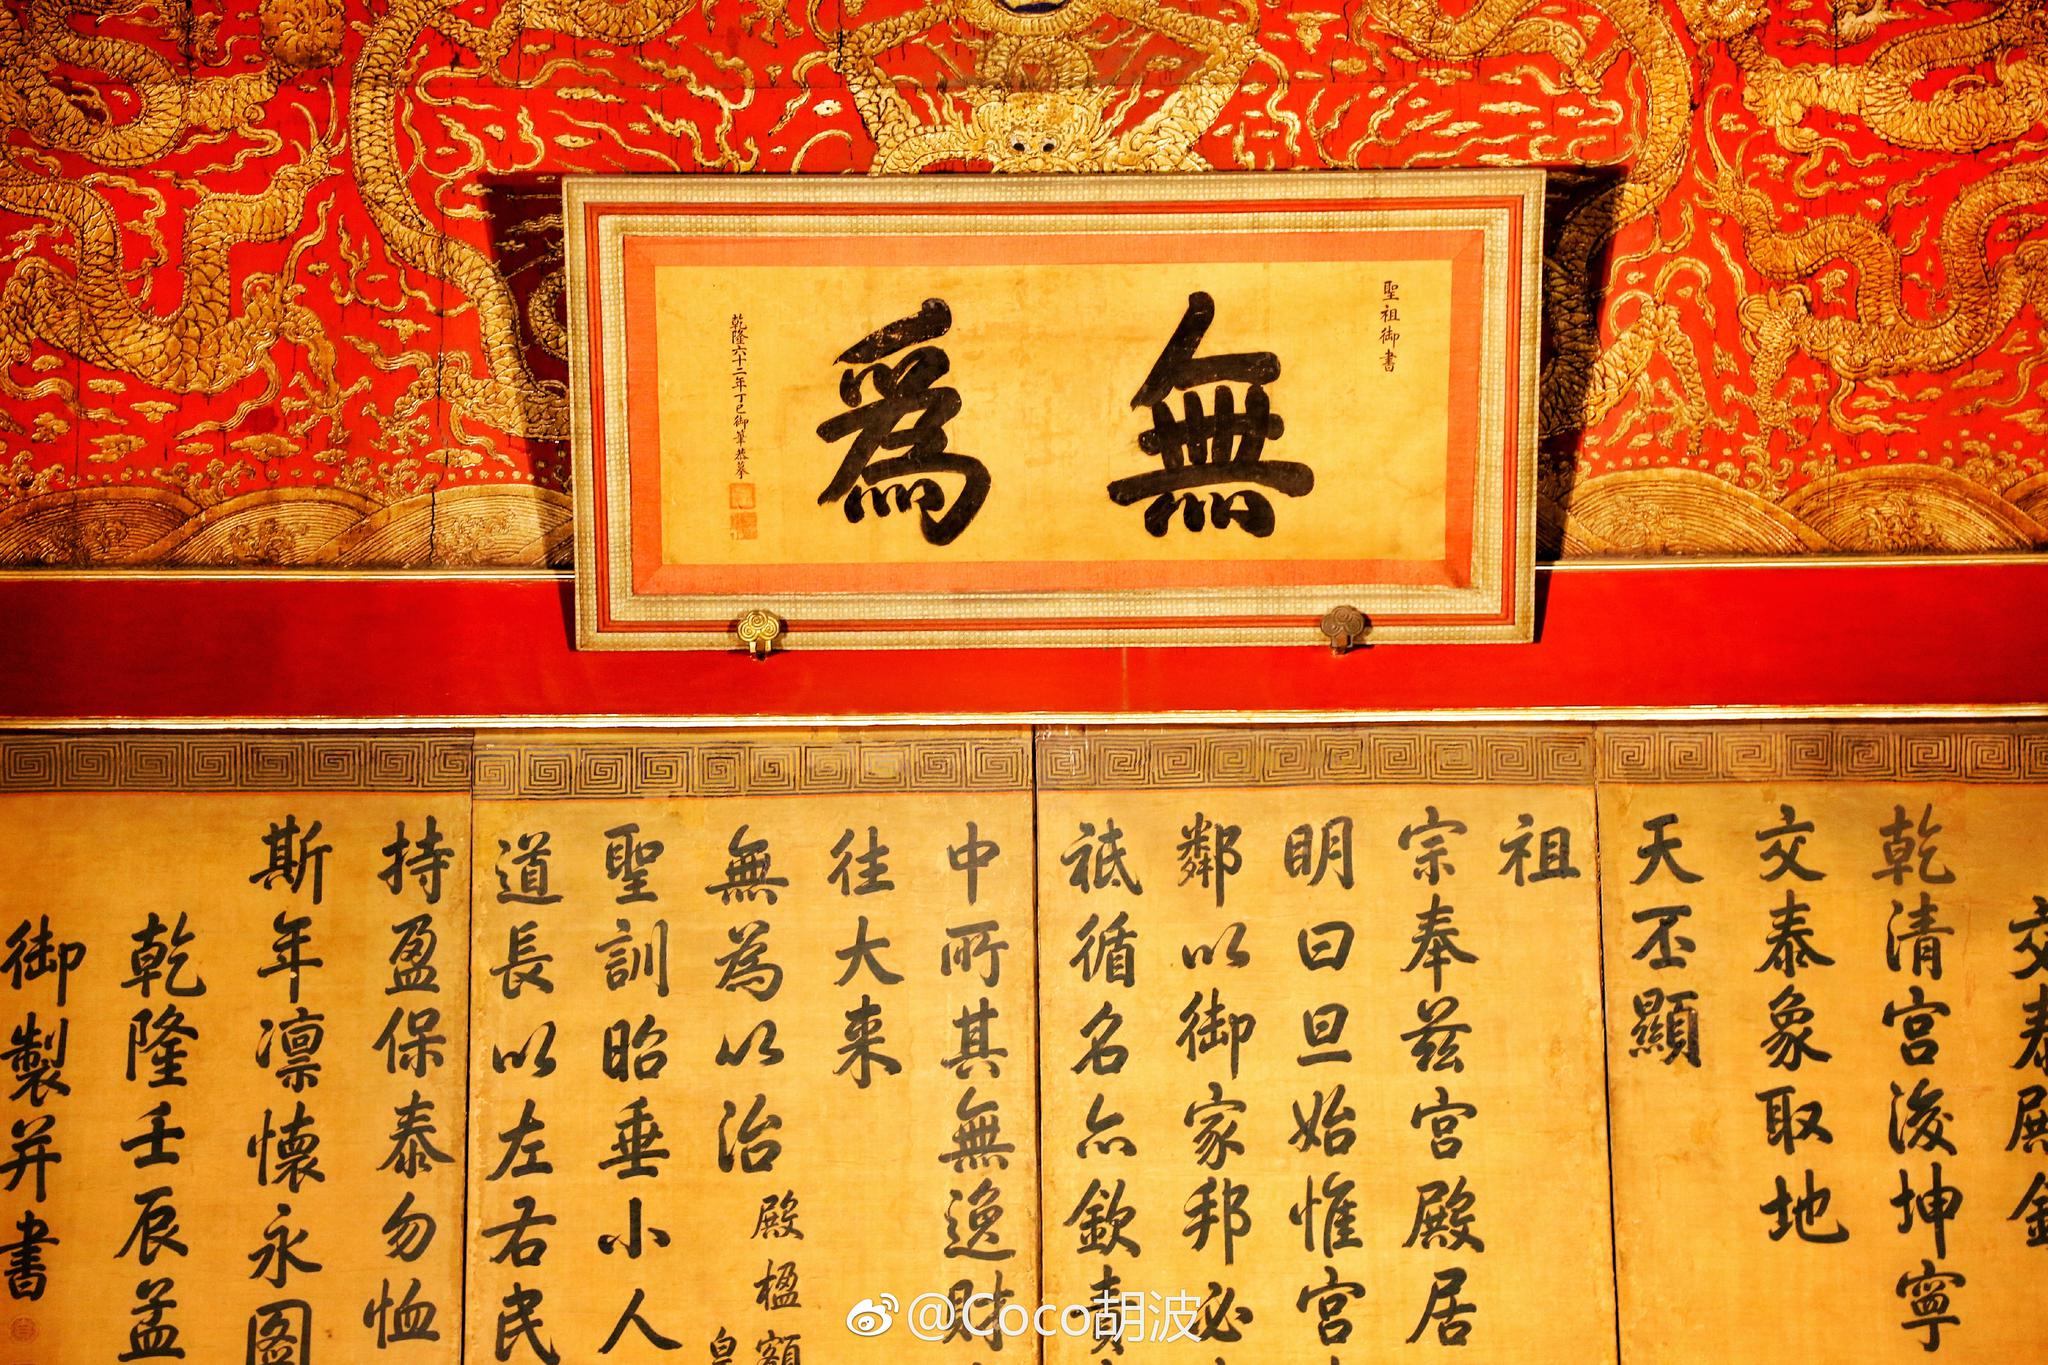 聖祖御書
無爲
乾隆六十二年丁巳御筆恭摹
交泰殿銘
乾清宮浚坤寧
交泰象取地
天丕顯
祖
宗奉茲宮殿居
明曰旦始惟宮
鄰以御家邦必
祗循名亦欽責
中所其無逸財
往大来
無為以治殿楹額皇
聖訓昭垂小人
道長以左右民
持盈保泰勿恤
斯年凛懷永圖
乾隆壬辰孟
御製并書
@Coco胡波